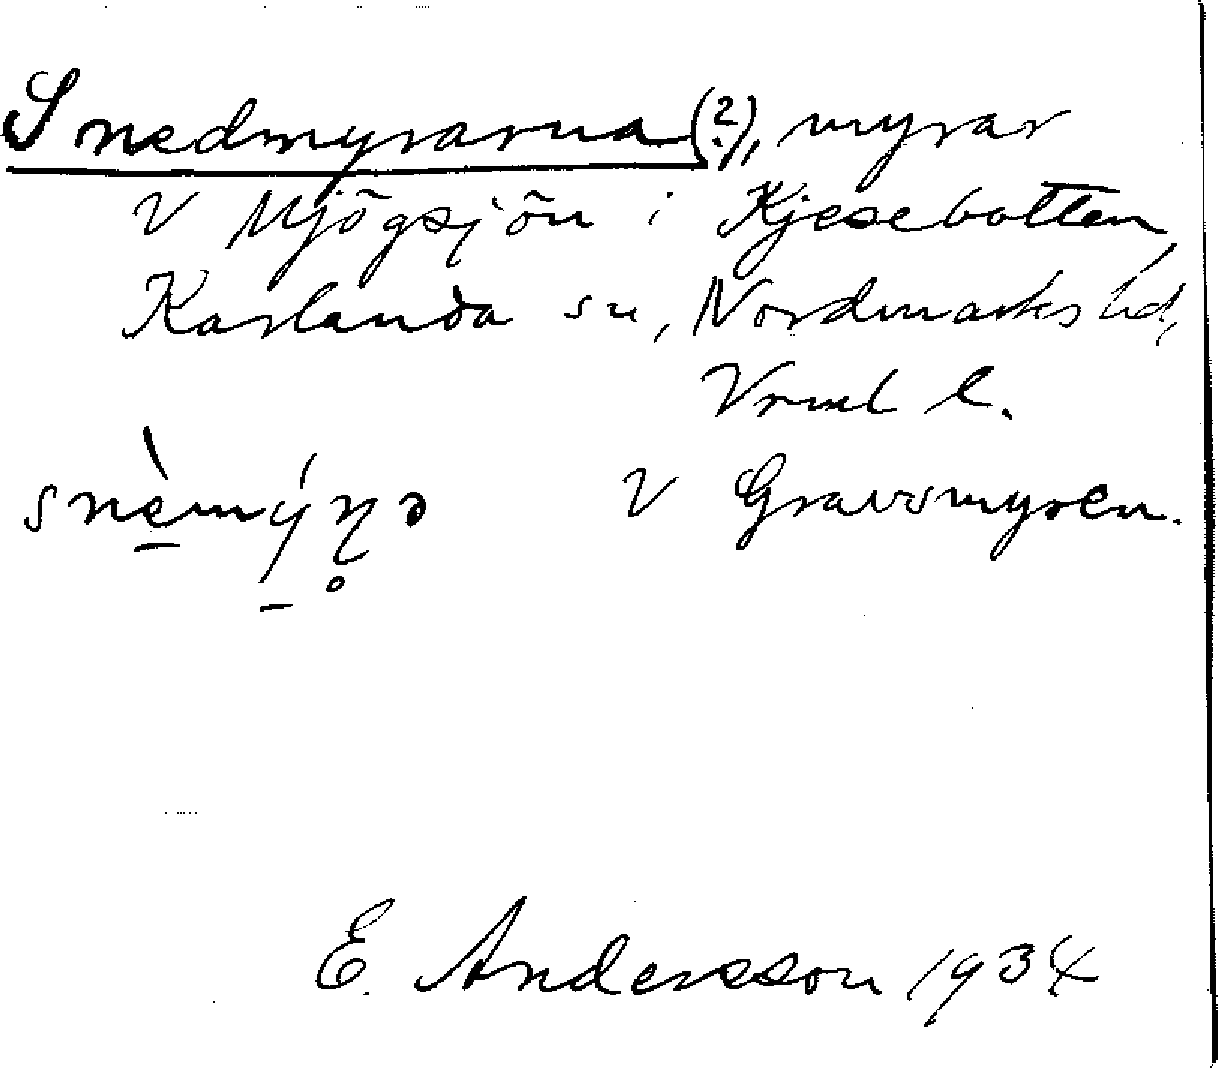 Snedmyrarna(?), myrar
V Mjögsjön i Kjesebotten,
Karlanda sn, Nordmarks hd,
Vrml l.
snèmýn̥ə V Gravsmyren.
E. Andersson 1934